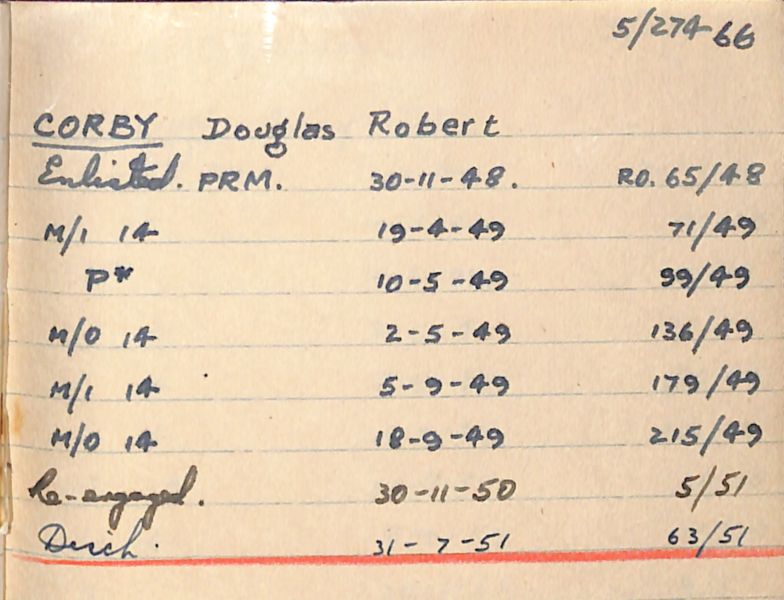 5/274-66
CORBY Douglas Robert
Enlisted. PRM. 30-11-48. RO. 65/48
M/1 14 19-4-49 71/49
P* 10-5-49 99/49
M/O 14 2-5-49 136/49
M/1 14 5-9-49 179/49
M/O 14 18-9-49 215/49
Re-engaged. 30-11-50 5/51
Disch. 31-7-51 63/51